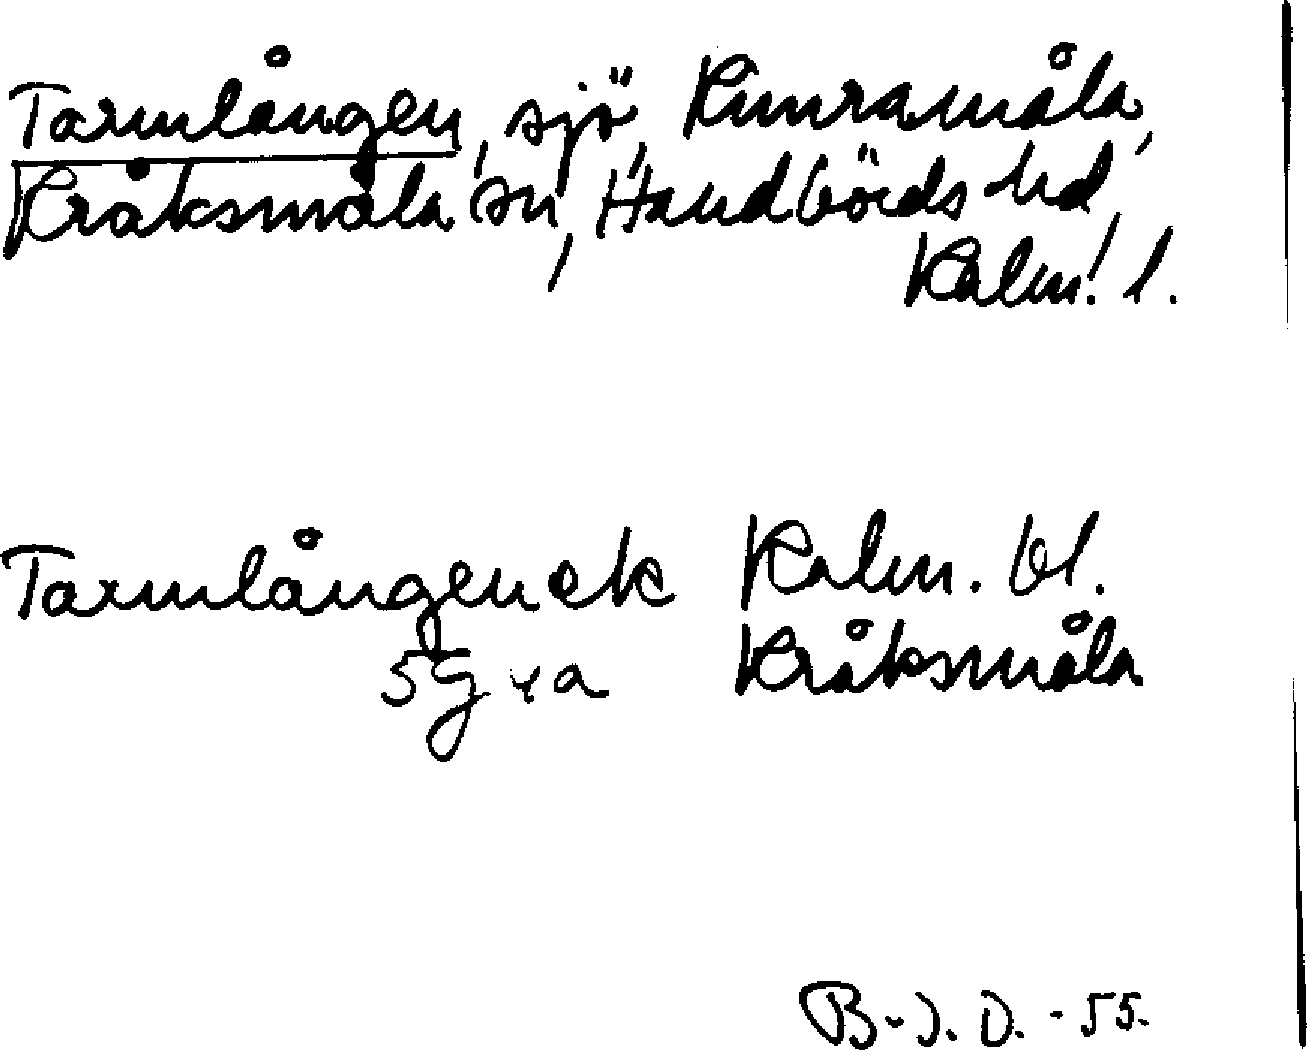 Tarmlången, sjö, Runramåla,
Kråksmåla sn, Handbörds hd,
Kalm. l.
Tarmlången ek Kalm. bl.
5G va Kråksmåla
B-J. D. - 55.